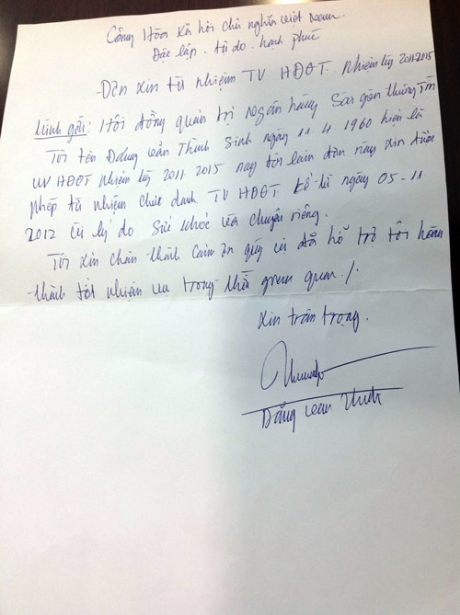 Cộng Hòa Xã hội chủ nghĩa việt Nam
Độc lập - tự do - hạnh phúc
- Đơn xin từ nhiệm TV HĐQT. Nhiệm kỳ 2011-2015
Kính gởi: Hội đồng quản trị Ngân hàng Sài gòn Thương Tín
Tôi tên Đặng văn Thành Sinh ngày 11 4 1960 hiện là
UV HĐQT Nhiệm kỳ 2011 2015 nay tôi làm đơn này xin được
phép từ nhiệm chức danh TV HĐQT kể từ ngày 05-11
2012 lý do Sức khỏe và chuyện riêng.
Tôi xin chân thành cảm ơn quý vị đã hỗ trợ tôi hoàn
thành tốt nhiệm vụ trong thời gian qua ./.
Xin trân trọng.
Đặng văn Thành